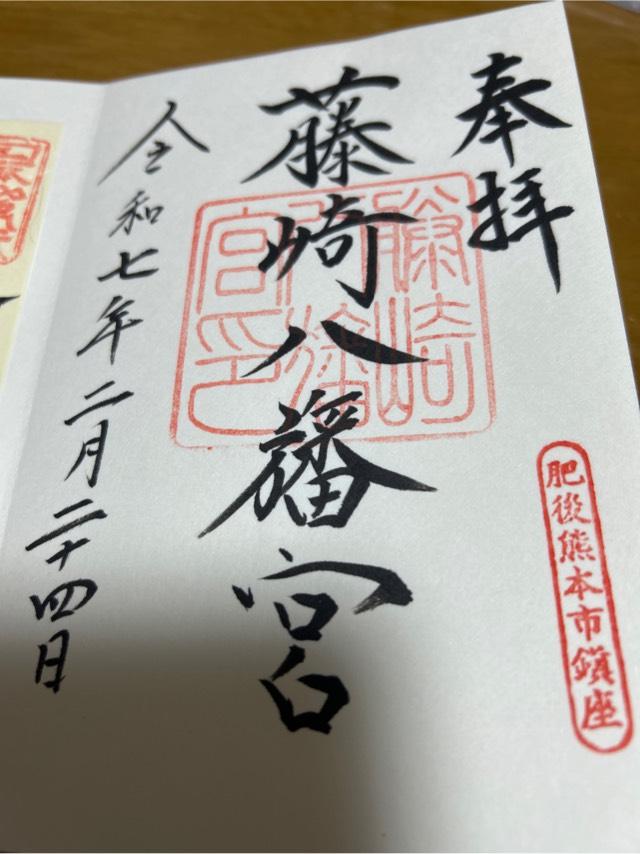 奉拝
肥後熊本市鎮座
藤崎八旛宮
藤崎八旛宮印
令和七年二月二十四日